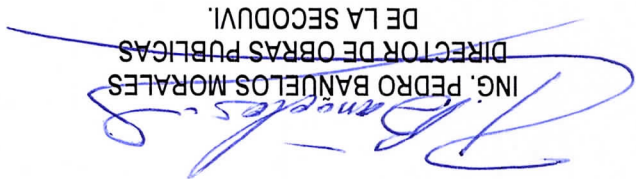 ING. PEDRO BAÑUELOS MORALES
DIRECTOR DE OBRAS PUBLICAS
DE LA SECODUVI.